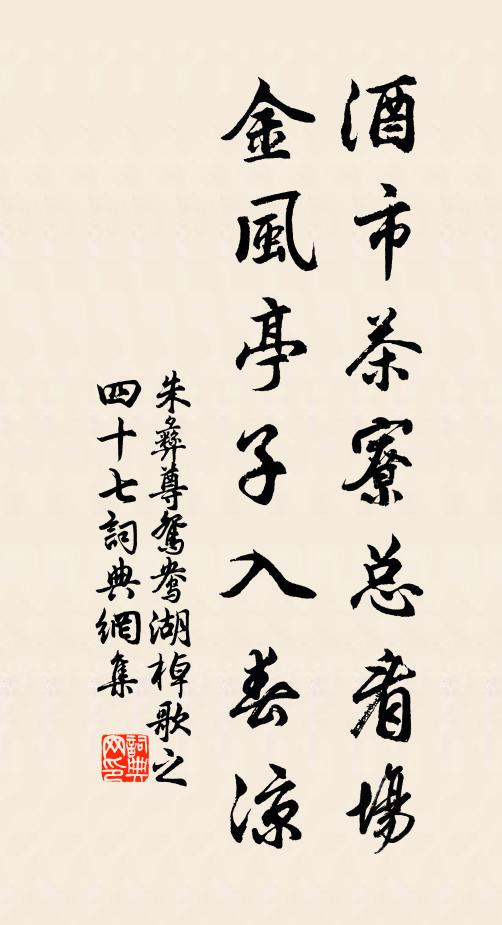 酒市茶寮总看場
金風亭子入春涼
朱彝尊鴛鴦湖棹歌之
四十七詞典網集
詞典網印